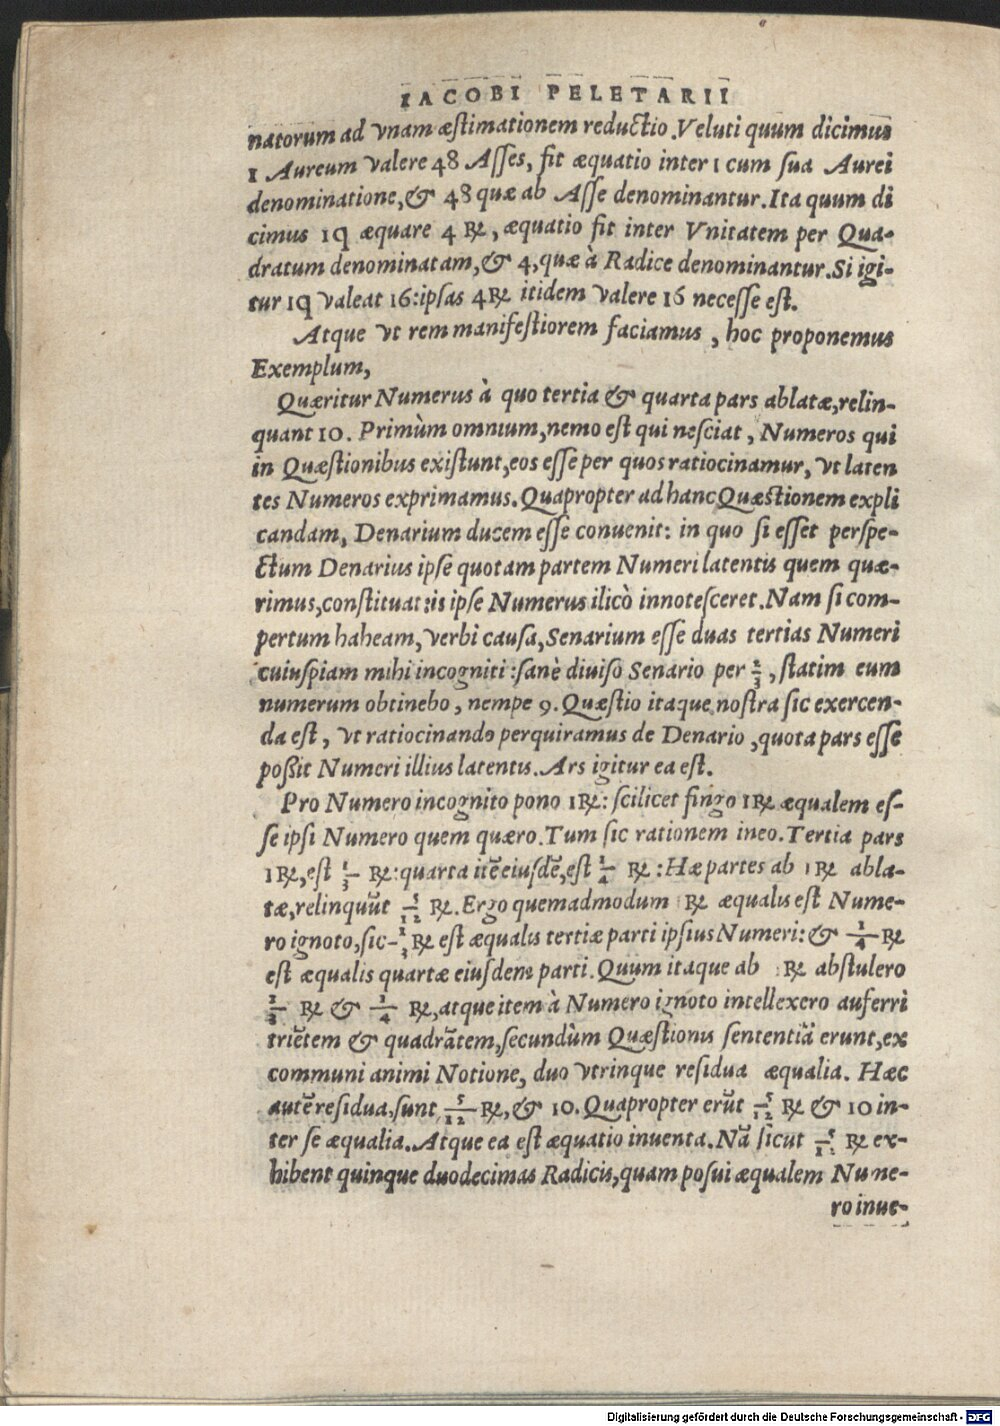 IACOBI PELETARII
natorum ad vnam æstimationem reductio. Veluti quum dicimus
1 Aureum valere 48 Asses, fit æquatio inter 1 cum sua Aurei
denominatione, & 48 quæ ab Asse denominantur. Ita quum di
cimus 1q æquare 4 ℞, æquatio fit inter Vnitatem per Qua-
dratum denominatam, & 4, quæ à Radice denominantur. Si igi-
tur 1q valeat 16: ipsas 4℞ itidem valere 16 necesse est.
Atque vt rem manifestiorem faciamus, hoc proponemus
Exemplum,
Quæritur Numerus à quo tertia & quarta pars ablatæ, relin-
quant 10. Primùm omnium, nemo est qui nesciat, Numeros qui
in Quæstionibus existunt, eos esse per quos ratiocinamur, vt laten
tes Numeros exprimamus. Quapropter ad hanc Quæstionem expli
candam, Denarium ducem esse conuenit: in quo si esset perspe-
ctum Denarius ipse quotam partem Numeri latentis quem quæ-
rimus, constituat: is ipse Numerus ilicò innotesceret. Nam si com-
pertum haheam, verbi causa, Senarium esse duas tertias Numeri
cuiuspiam mihi incogniti: sanè diuiso Senario per 2/3, statim eum
numerum obtinebo, nempe 9. Quæstio itaque nostra sic exercen-
da est, vt ratiocinando perquiramus de Denario, quota pars esse
poßit Numeri illius latentis. Ars igitur ea est.
Pro Numero incognito pono 1℞: scilicet fingo 1℞ æqualem es-
se ipsi Numero quem quæro. Tum sic rationem ineo. Tertia pars
1℞, est 1/3 ℞: quarta itẽ eiusdẽ, est 1/4 ℞: Hæ partes ab 1℞ abla-
tæ, relinquũt 5/12 ℞. Ergo quemadmodum ℞ æqualis est Nume-
ro ignoto, sic 1/3 ℞ est æqualis tertiæ parti ipsius Numeri: & 1/4 ℞
est æqualis quartæ eiusdem parti. Quum itaque ab ℞ abstulero
1/3 ℞ & 1/4 ℞, atque item à Numero ignoto intellexero auferri
triẽtem & quadrãtem, secundùm Quæstionis sententiã erunt, ex
communi animi Notione, duo vtrinque residua æqualia. Hæc
autẽ residua, sunt 5/12 ℞, & 10. Quapropter erũt 5/12 ℞ & 10 in-
ter se æqualia. Atque ea est æquatio inuenta. Nã sicut 5/12 ℞ ex-
hibent quinque duodecimas Radicis, quam posui æqualem Nume-
ro inue-
Digitalisierung gefördert durch die Deutsche Forschungsgemeinschaft - DFG